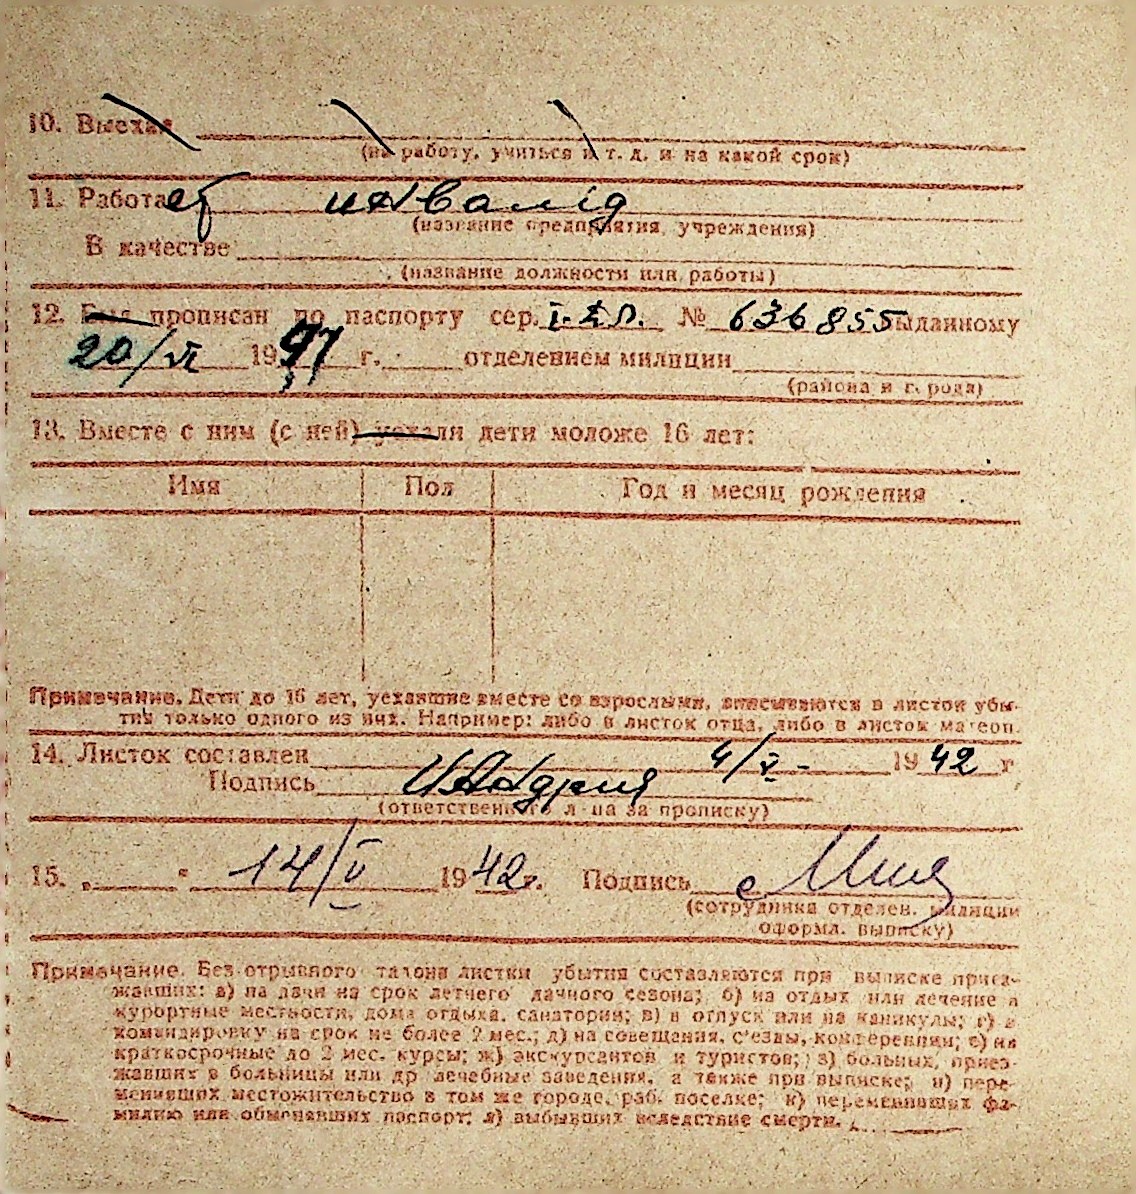 10. Выехал
(на работу, учиться и т. д. и на какой срок)
11. Работает инвалид
(название предприятия, учреждения)
В качестве
(название должности или работы)
12. Был прописан по паспорту сер. № 636855 выданному
20/VI 19 г. отделением милиции
(района и г. рода)
13. Вместе с ним (с ней) уехали дети моложе 16 лет:
Имя Пол Год и месяц рождения
Примечание. Дети до 16 лет, уехавшие вместе со взрослыми, вписываются в листок убы-
тия только одного из них. Например: либо в листок отца, либо в листок матери.
14. Листок составлен 4/V - 1942 г
Подпись
(ответственного л-ца за прописку)
15. „ " 14/V 1942 г. Подпись
(сотрудника отделен. милиции
оформл. выписку)
Примечание. Без отрывного талона листки убытия составляются при выписке приез-
жавших: а) на дачи на срок летнего дачного сезона; б) на отдых или лечение в
курортные местности, дома отдыха, санатории; в) в отпуск или на каникулы; г) в
командировку на срок не более 2 мес.; д) на совещания, съезды, конференции; е) на
краткосрочные до 2 мес. курсы; ж) экскурсантов и туристов; з) больных, приез-
жавших в больницы или др лечебные заведения, а также при выписке; и) пере-
менивших местожительство в том же городе, раб. поселке; к) переменивших фа-
милию или обменявших паспорт; л) выбывших вследствие смерти.